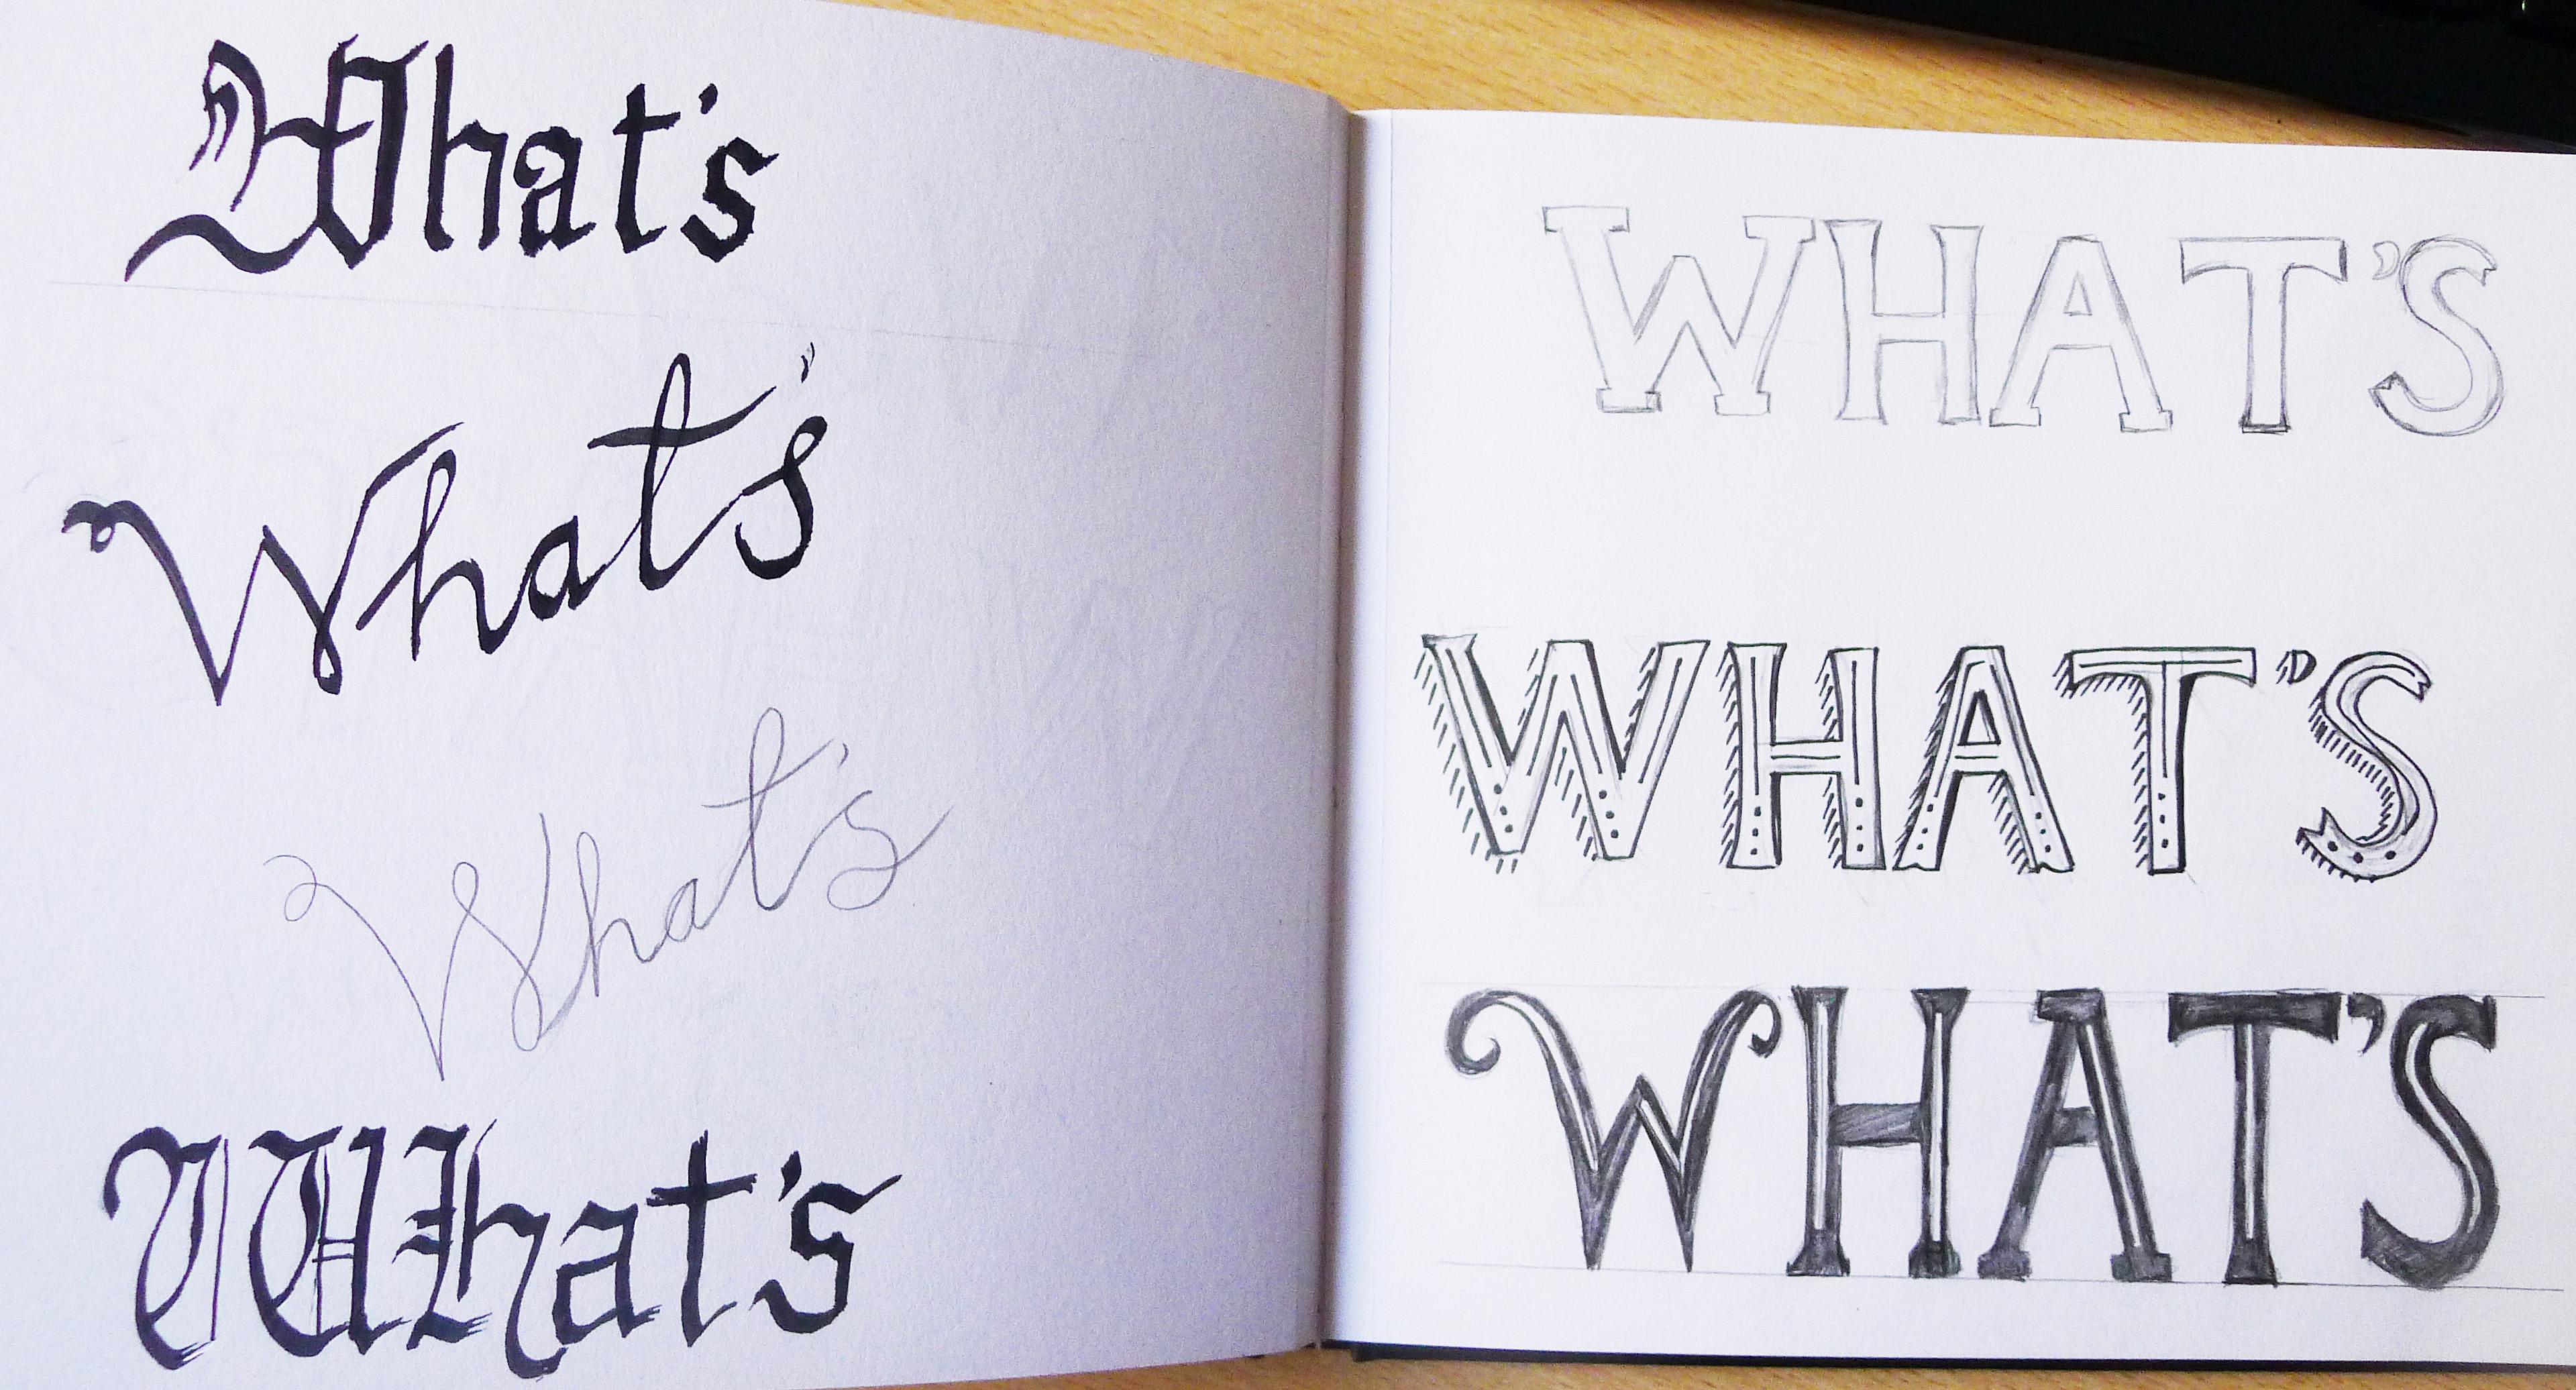 What's
What's
What's
What's
WHAT'S
WHAT'S
WHAT'S